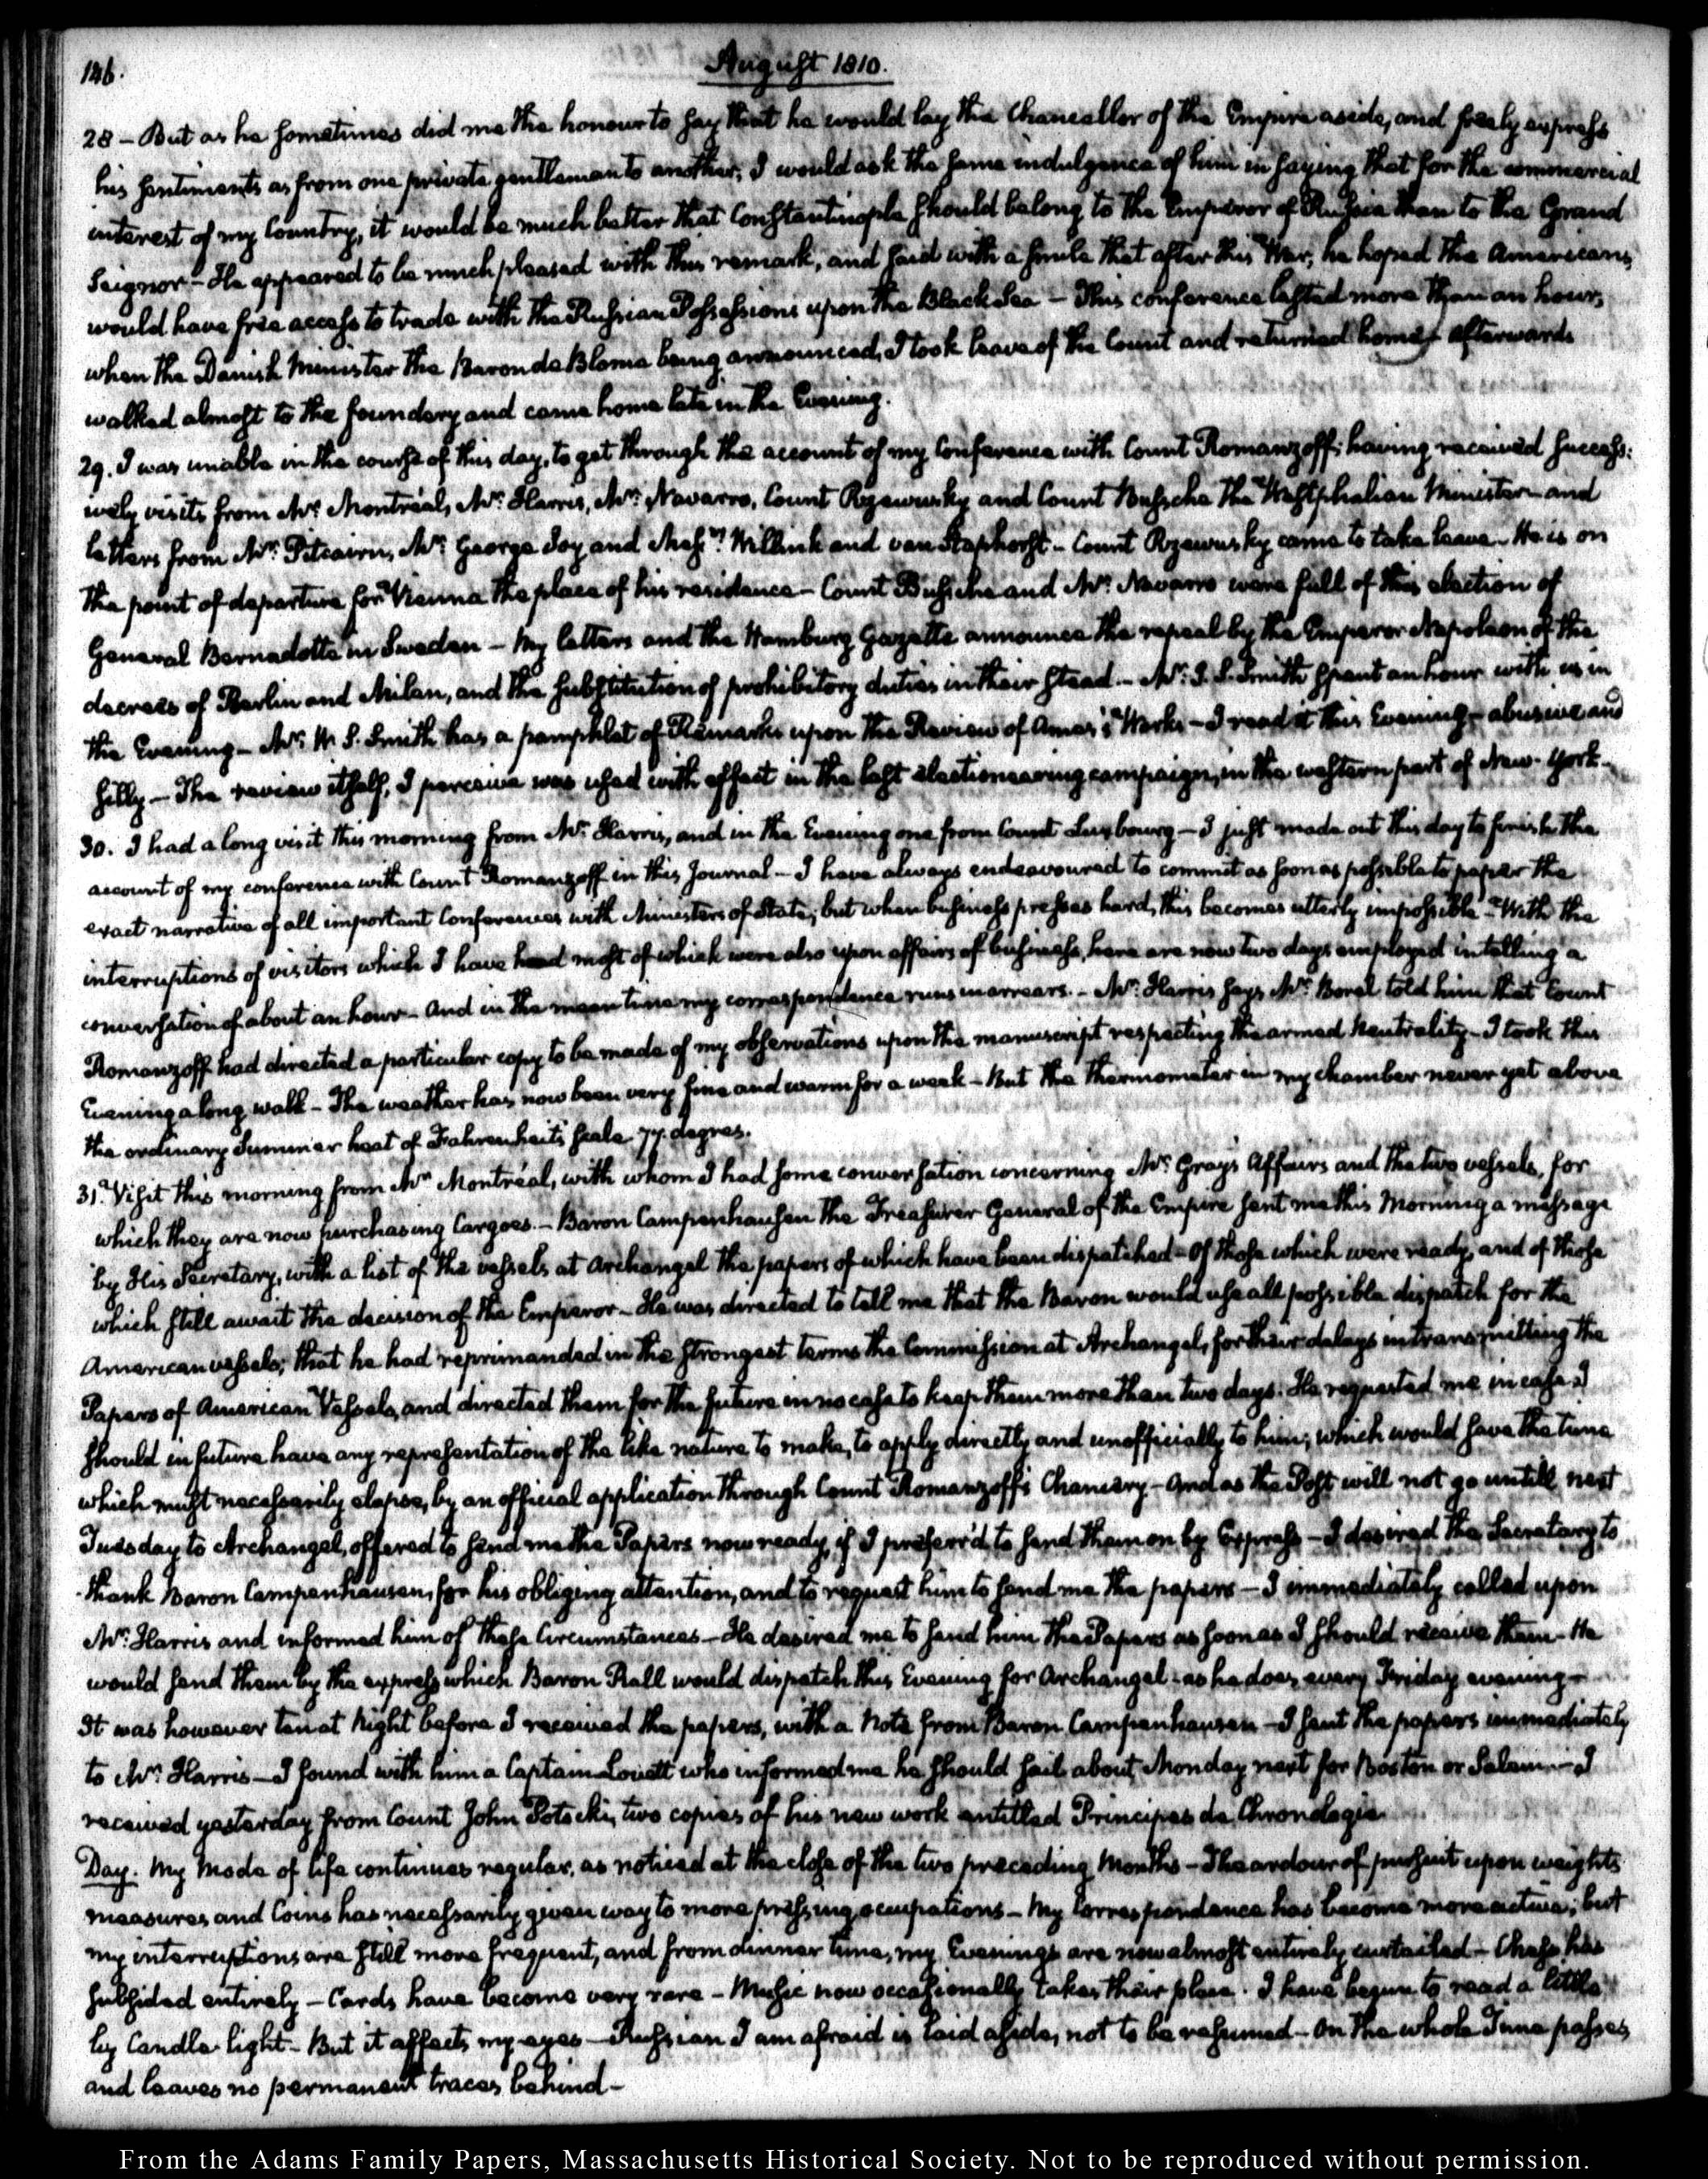 146.
August 1810.
28 — But as he sometimes did me the honour to say that he would lay the Chancellor of the Empire aside, and freely express
his sentiments as from one private gentleman to another, I would ask the same indulgence of him in saying that for the commercial
interest of my Country, it would be much better that Constantinople should belong to the Emperor of Russia than to the Grand
Seignor — He appeared to be much pleased with this remark, and said with a smile that after this War, he hoped the Americans
would have free access to trade with the Russian Possessions upon the Black Sea — This conference lasted more than an hour,
when the Danish Minister the Baron de Blome being announced, I took leave of the Count and returned home — afterwards
walked almost to the foundery and came home late in the Evening.
29. I was unable in the course of this day, to get through the account of my Conference with Count Romanzoff; having received success:
ively visits from Mr. Montréal, Mr. Harris, Mr. Navarro, Count Rzewusky and Count Bussche the Westphalian Minister — and
letters from Mr. Pitcairn, Mr. George Joy and Messrs. Willink and van Staphorst — Count Rzewusky came to take leave — He is on
the point of departure for Vienna the place of his residence — Count Bussche and Mr. Navarro were full of this election of
General Bernadotte in Sweden — My letters and the Hamburg Gazette announce the repeal by the Emperor Napoleon of the
decrees of Berlin and Milan, and the substitution of prohibitory duties in their stead. — Mr. J. S. Smith spent an hour with us in
the Evening — Mr. W. S. Smith has a pamphlet of Remarks upon the Review of Ames's Works — I read it this Evening — abusive and
silly — The review itself, I perceive was used with effect in the last electioneering campaign, in the western part of New-York.
30. I had a long visit this morning from Mr. Harris, and in the Evening one from Count Luxbourg — I just made out this day to finish the
account of my conference with Count Romanzoff in this Journal — I have always endeavoured to commit as soon as possible to paper the
exact narrative of all important Conferences with Ministers of State; but when business presses hard, this becomes utterly impossible — With the
interruptions of visitors which I have had most of which were also upon affairs of business, here are now two days employed in telling a
conversation of about an hour — And in the mean time my correspondence runs in arrears. — Mr. Harris says Mr. Borel told him that Count
Romanzoff had directed a particular copy to be made of my observations upon the manuscript respecting the armed Neutrality — I took this
Evening a long walk — The weather has now been very fine and warm for a week — But the Thermometer in my chamber never yet above
the ordinary Summer heat of Fahrenheit's scale 77. degrees.
31. Visit this morning from Mr. Montréal, with whom I had some conversation concerning Mr. Gray's Affairs and the two vessels, for
which they are now purchasing Cargoes. — Baron Campenhausen the Treasurer General of the Empire sent me this Morning a message
by His Secretary, with a list of the vessels at Archangel the papers of which have been dispatched — Of those which were ready, and of those
which still await the decision of the Emperor — He was directed to tell me that the Baron would use all possible dispatch for the
American vessels; that he had reprimanded in the strongest terms the Commission at Archangel, for their delays in transmitting the
Papers of American Vessels, and directed them for the future in no case to keep them more than two days. He requested me in case I
should in future have any representation of the like nature to make, to apply directly and unofficially to him; which would save the time
which must necessarily elapse, by an official application through Count Romanzoff's Chancery — And as the Post will not go untill next
Tuesday to Archangel, offered to send me the Papers now ready, if I preferr'd to send them on by Express — I desired the Secretary to
thank Baron Campenhausen, for his obliging attention, and to request him to send me the papers — I immediately called upon
Mr. Harris and informed him of these Circumstances — He desired me to send him the Papers as soon as I should receive them — He
would send them by the express which Baron Rall would dispatch this Evening for Archangel — as he does, every Friday evening —
It was however ten at Night before I received the papers, with a Note from Baron Campenhausen — I sent the papers immediately
to Mr. Harris — I found with him a Captain Lovett who informed me he should sail about Monday next for Boston or Salem. — I
received yesterday from Count John Potocki, two copies of his new work entitled Principes de Chronologie.
Day. My mode of life continues regular, as noticed at the close of the two preceding Months — The ardour of pursuit upon weights
measures and Coins has necessarily given way to more pressing occupations — My Correspondence has become more active; but
my interruptions are still more frequent, and from dinner time, my Evenings are now almost entirely curtailed — Chess has
subsided entirely — Cards have become very rare — Music now occasionally takes their place. I have begun to read a little
by Candle-light — But it affects my eyes — Russian I am afraid is laid aside, not to be resumed — On the whole Time passes
and leaves no permanent traces behind —
From the Adams Family Papers, Massachusetts Historical Society. Not to be reproduced without permission.